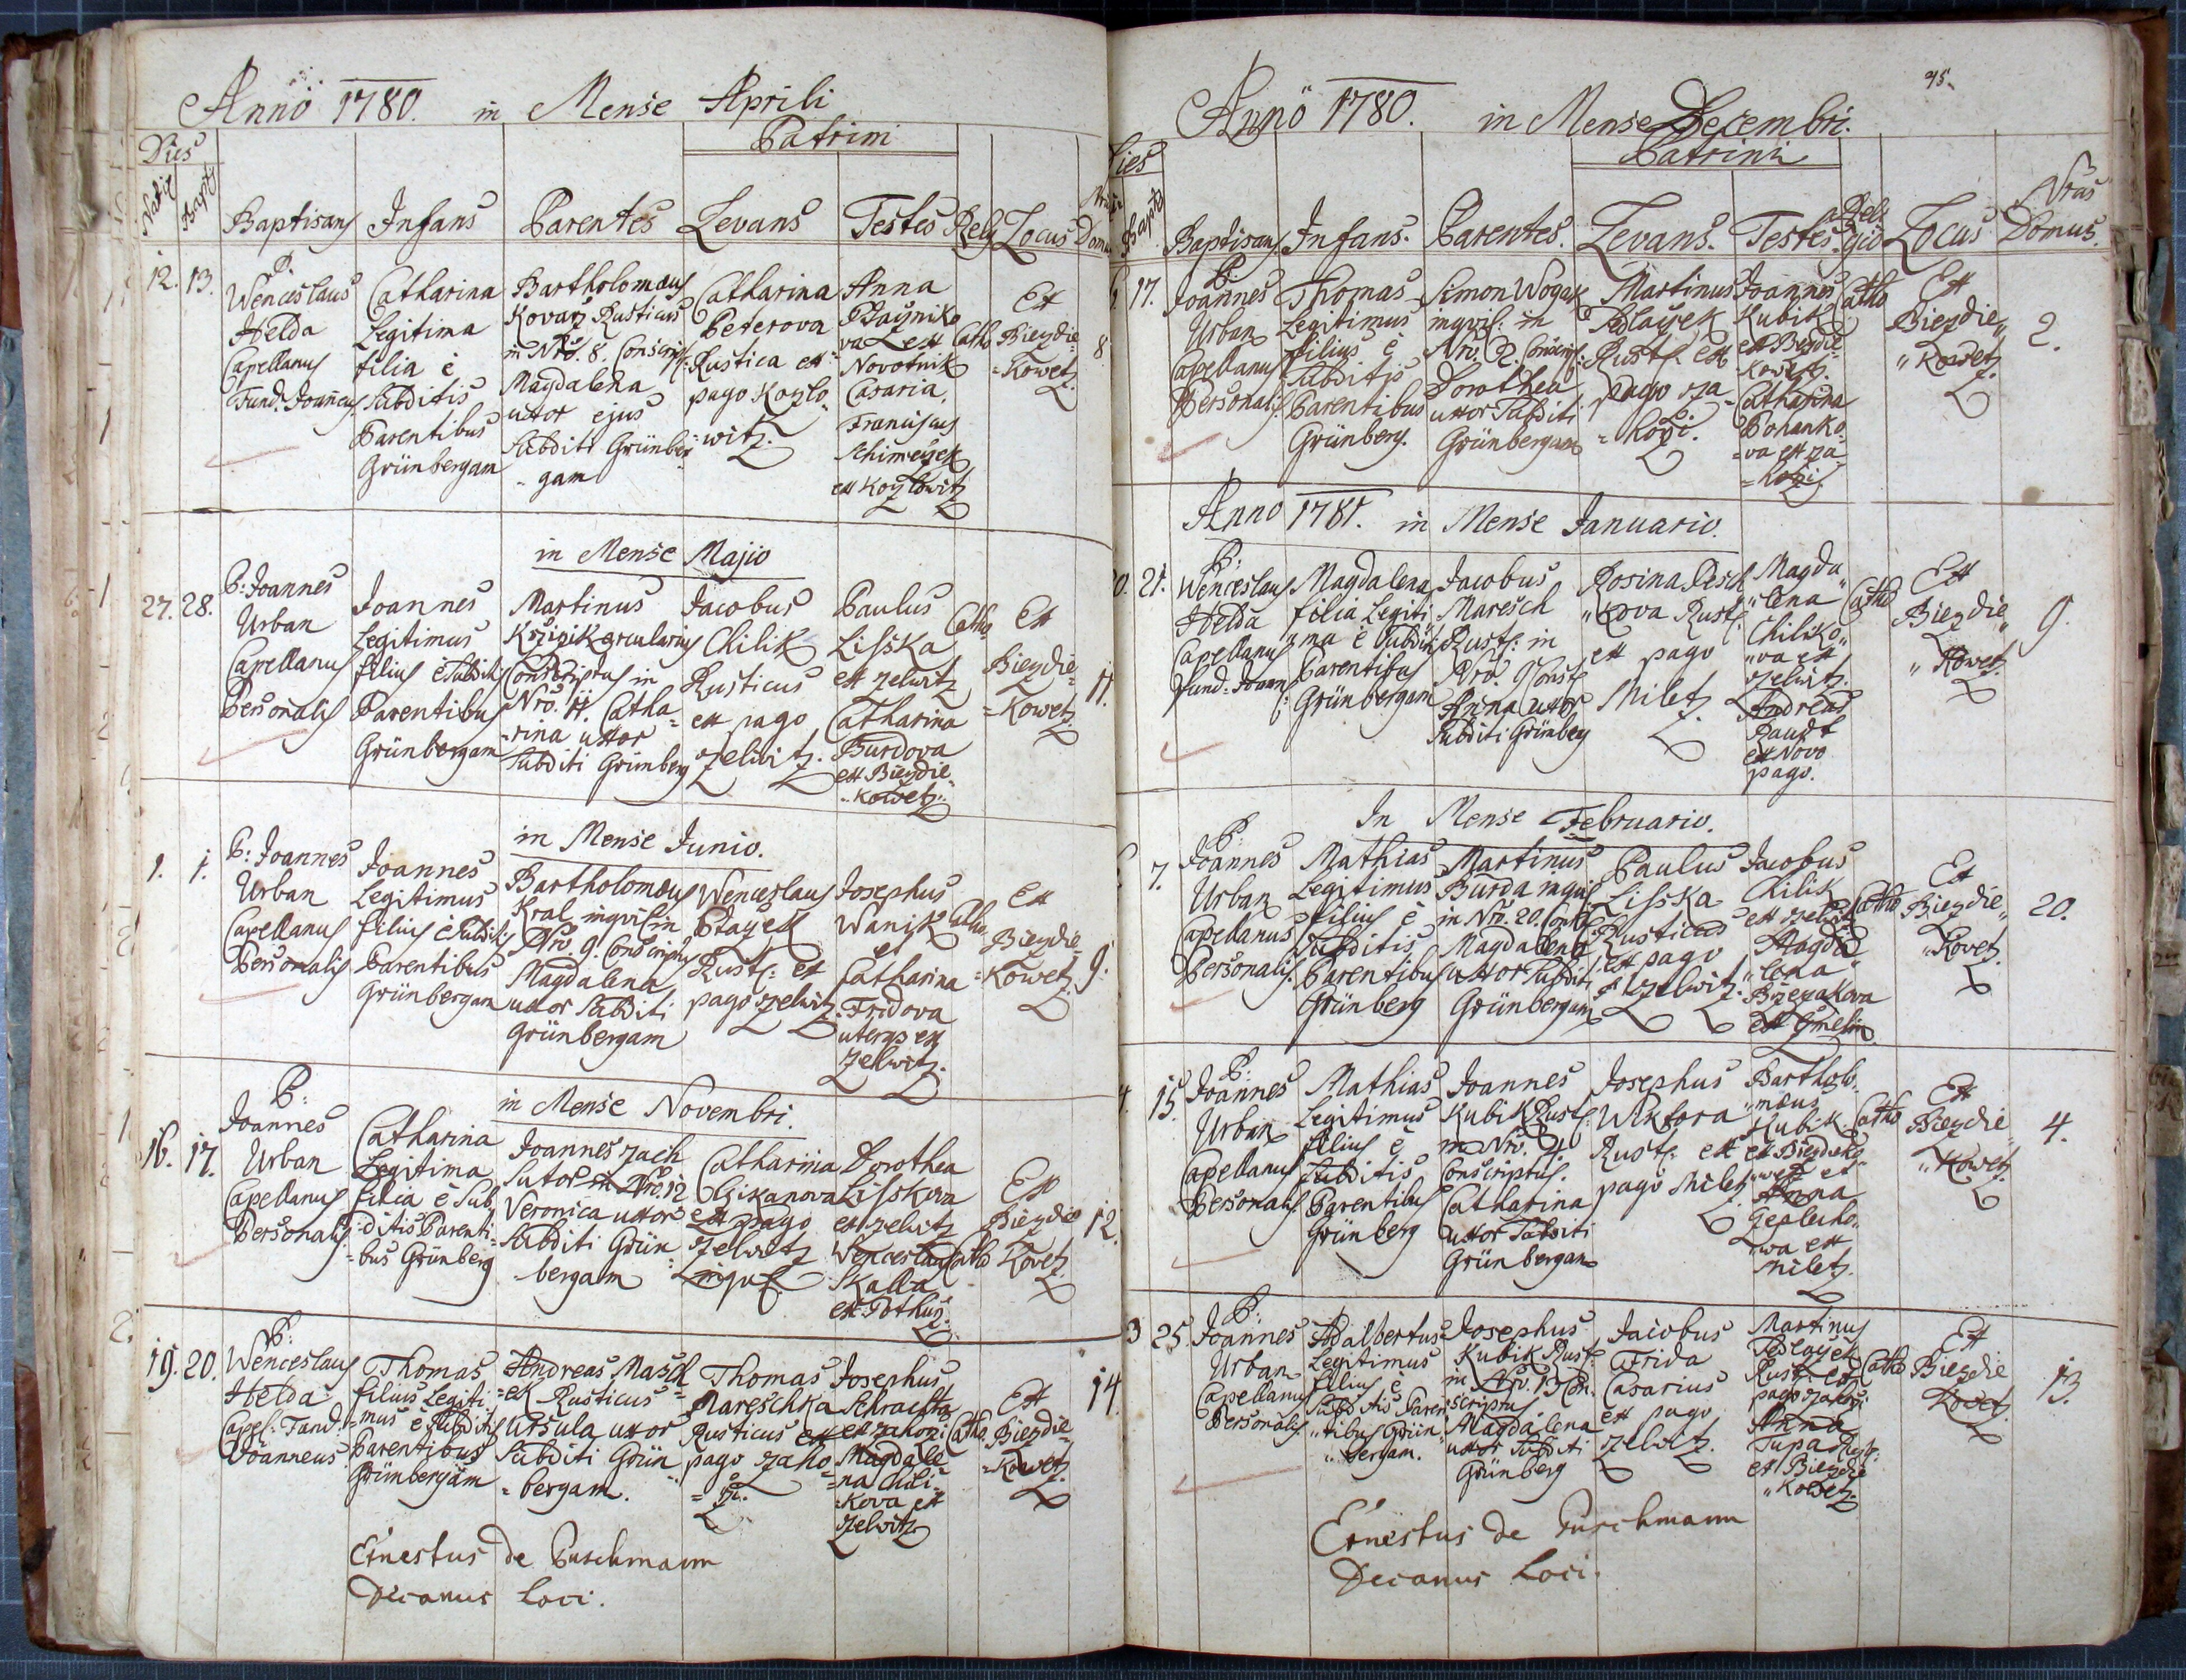 Anno 1780. in Mense Aprili
Patrini
Dies
Nativ Bapt Baptisans Infans Parentes Levans Testes Relg Locus Domus
12. 13.
P.
Wenceslaus
Helda
Capellanus
Fund. Joaneus
Catharina
Legitima
filia è
Subditis
Parentibus
Grünbergam
Bartholomæus
Kovarz Rusticus
in Nro. 8. Conscrip:
Magdalena
uxor ejus
Subditi Grünber
gam
Catharina
Peterova
Rustica ex
pago Kozlo
=witz.
Anna
va ex
Novotnik
Casaria,
Franciscus
Schimeczek
ex Kozlowitz
Catho
Ex
Biezdie=
=Kowetz.
8
in Mense Majio
27. 28.
P: Joannes
Urban
Capellanus
Personalis
Joannes
Legitimus
filius è Subditis
Parentibus
Grünbergam
Martinus
Krziz̄ik arcularius
Conscriptus in
Nro. 11. Catha=
=rina uxor
Subditi Grünberg
Jacobus
Chilik
Rusticus
ex pago
Zelwitz.
Paulus
Lisska
ex Zelwitz
Catharina
Burdova
ex Biezdie=
=Kowetz.
Catho
Ex
Biezdie=
=Kowetz.
11.
in Mense Junio.
1. 1.
P: Joannes
Urban
Capellanus
Personalis
Joannes
Legitimus
filius è Subditis
Parentibus
Grünbergam
Bartholomæus
Kral inqvil in
Nro 9. Conscriptus
Magdalena
uxor Subditi
Grünbergam
Wenceslaus
Ptazek
Rust: ex
pago Zelwitz.
Josephus
Wanik
et
Catharina
Fridova
uterqs ex
Zelwitz.
Catho
Ex
Biezdie=
=Kowetz
9.
in Mense Novembri.
16. 17.
P:
Joannes
Urban
Capellanus
Personalis
Catharina
Legitima
filia è Sub
=ditis Parenti=
=bus Grünberg
Joannes Zach
Sutor in Nro 12
Veronica uxor
Subditi Grün
=bergam
Catharina
Czikanova
ex pago
Zelwitz
inquil
Dorothea
Lisskova
ex Zelwitz
Wenceslaus
Skalla
ex Pothus.
Catho
Ex
Biezdie
Kovetz
12.
19. 20.
P:
Wenceslaus
Helda
Capel: Fund.
Joanneus
Thomas
filius Legiti=
=mus è Subditis
Parentibus
Grünbergam
Andreas Masch
=ek Rusticus
Ursula uxor
Subditi Grün
=bergam.
Thomas
Mareschka
Rusticus ex
pago Zaho
=rzi.
Josephus
ex Zahorzi
Magdale=
=na Chili=
=kova ex
Zelwitz
Catho.
Ex
Biezdie
=Kowetz.
14
Ernestus de Puschmann
Decanus Loci.
95.
Anno 1780. in Mense Decembri.
Patrini
Dies
Bapt Baptisans Infans. Parentes. Levans. Testes. Religio Locus Nrus Domus.
17.
P:
Joannes
Urban
Capellanus
Personalis
Thomas
Legitimus
filius è
Subditis
Parentibus
Grünberg.
Simon Wogak
inqvil: in
Nro. 2. Conscript.
Dorothea
uxor Subditi
Grünbergam
Martinus
Sedlaczek
Rust: ex
pago Za
=horzi.
Joannes
Kubik
ex Biezdie=
=kowetz.
Catharina
Bohanko
=va ex Za
=horzi.
Catho
Ex
Biezdie
Kowetz.
2.
Anno 1781. in Mense Januario.
21.
P:
Wenceslaus
Helda
Capellanus
Fund: Joann
Magdalena
filia Legiti
ma è Subditis
Parentibus
Grünbergam
Jacobus
Maresch
Rust: in
Nro. 9 Const
Anna uxor
Subditi Grünberg
Rosina Pesch
Kova Rust:
ex pago
Miletz.
Magda
lena
Chiliko
va ex
Zelwitz.
Andreas
Baudt
ex Novo
pago.
Catho
Ex
Biezdie
Kowetz.
9.
In Mense Februario.
7.
P:
Joannes
Urban
Capellanus
Personalis.
Mathias
Legitimus
filius è
Subditis
Parentibus
Grünberg
Martinus
Burda inquil
in Nro. 20. Const
Magdalena
uxor Subditi
Grünbergam
Paulus
Lisska
Rusticus
ex pago
Zelwitz.
Jacobus
Chilik
ex Zelwitz
Magda
lena
Brzezakova
ex Chmelin.
Catho
Ex
Biezdie
Kovetz.
20.
15.
P:
Joannes
Urban
Capellanus
Personalis
Mathias
Legitimus
filius è
Subditis
Parentibus
Grünberg
Joannes
Kubik Rust:
in Nro. 4.
Conscriptus.
Catharina
uxor Subditi
Grünbergam
Josephus
Wiktora
Rust: ex
pago Miletz.
Bartholo
mæus
Kubik
ex Biezdieko
wetz et
Anna
wa ex
Miletz.
Catho
Ex
Biezdie
Kowetz.
4.
3 25.
P:
Joannes
Urban
Capellanus
Personalis
Adalbertus
Legitimus
filius è
Subditis Paren
tibus Grün
bergam.
Josephus
Kubik Rust:
in Nro. 13 Con
scriptus
Magdalena
uxor Subditi
Grünberg
Jacobus
Frida
Casarius
ex pago
Zelwitz.
Martinus
Sedlaczek
Rust: ex
pago Zahorzi
Anna
Tupa Rust:
ex Biezdie
Kowetz.
Catho
Ex
Biezdie
Kovetz.
13.
Ernestus de Puschmann
Decanus Loci.